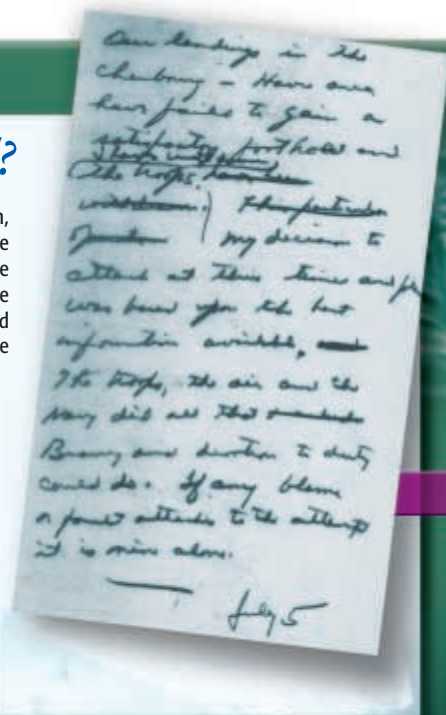 ?
n,
e
e
e
d
e
Our landings in the
Cherbourg – Havre area
have failed to gain a
satisfactory foothold and
I have withdrawn
the troops. have been
withdrawn. This particular
operation my decision to
attack at this time and place
was based upon the best
information available, and
The troops, the air and the
Navy did all that
Bravery and devotion to duty
could do. If any blame
or fault attaches to the attempt
it is mine alone.
July 5